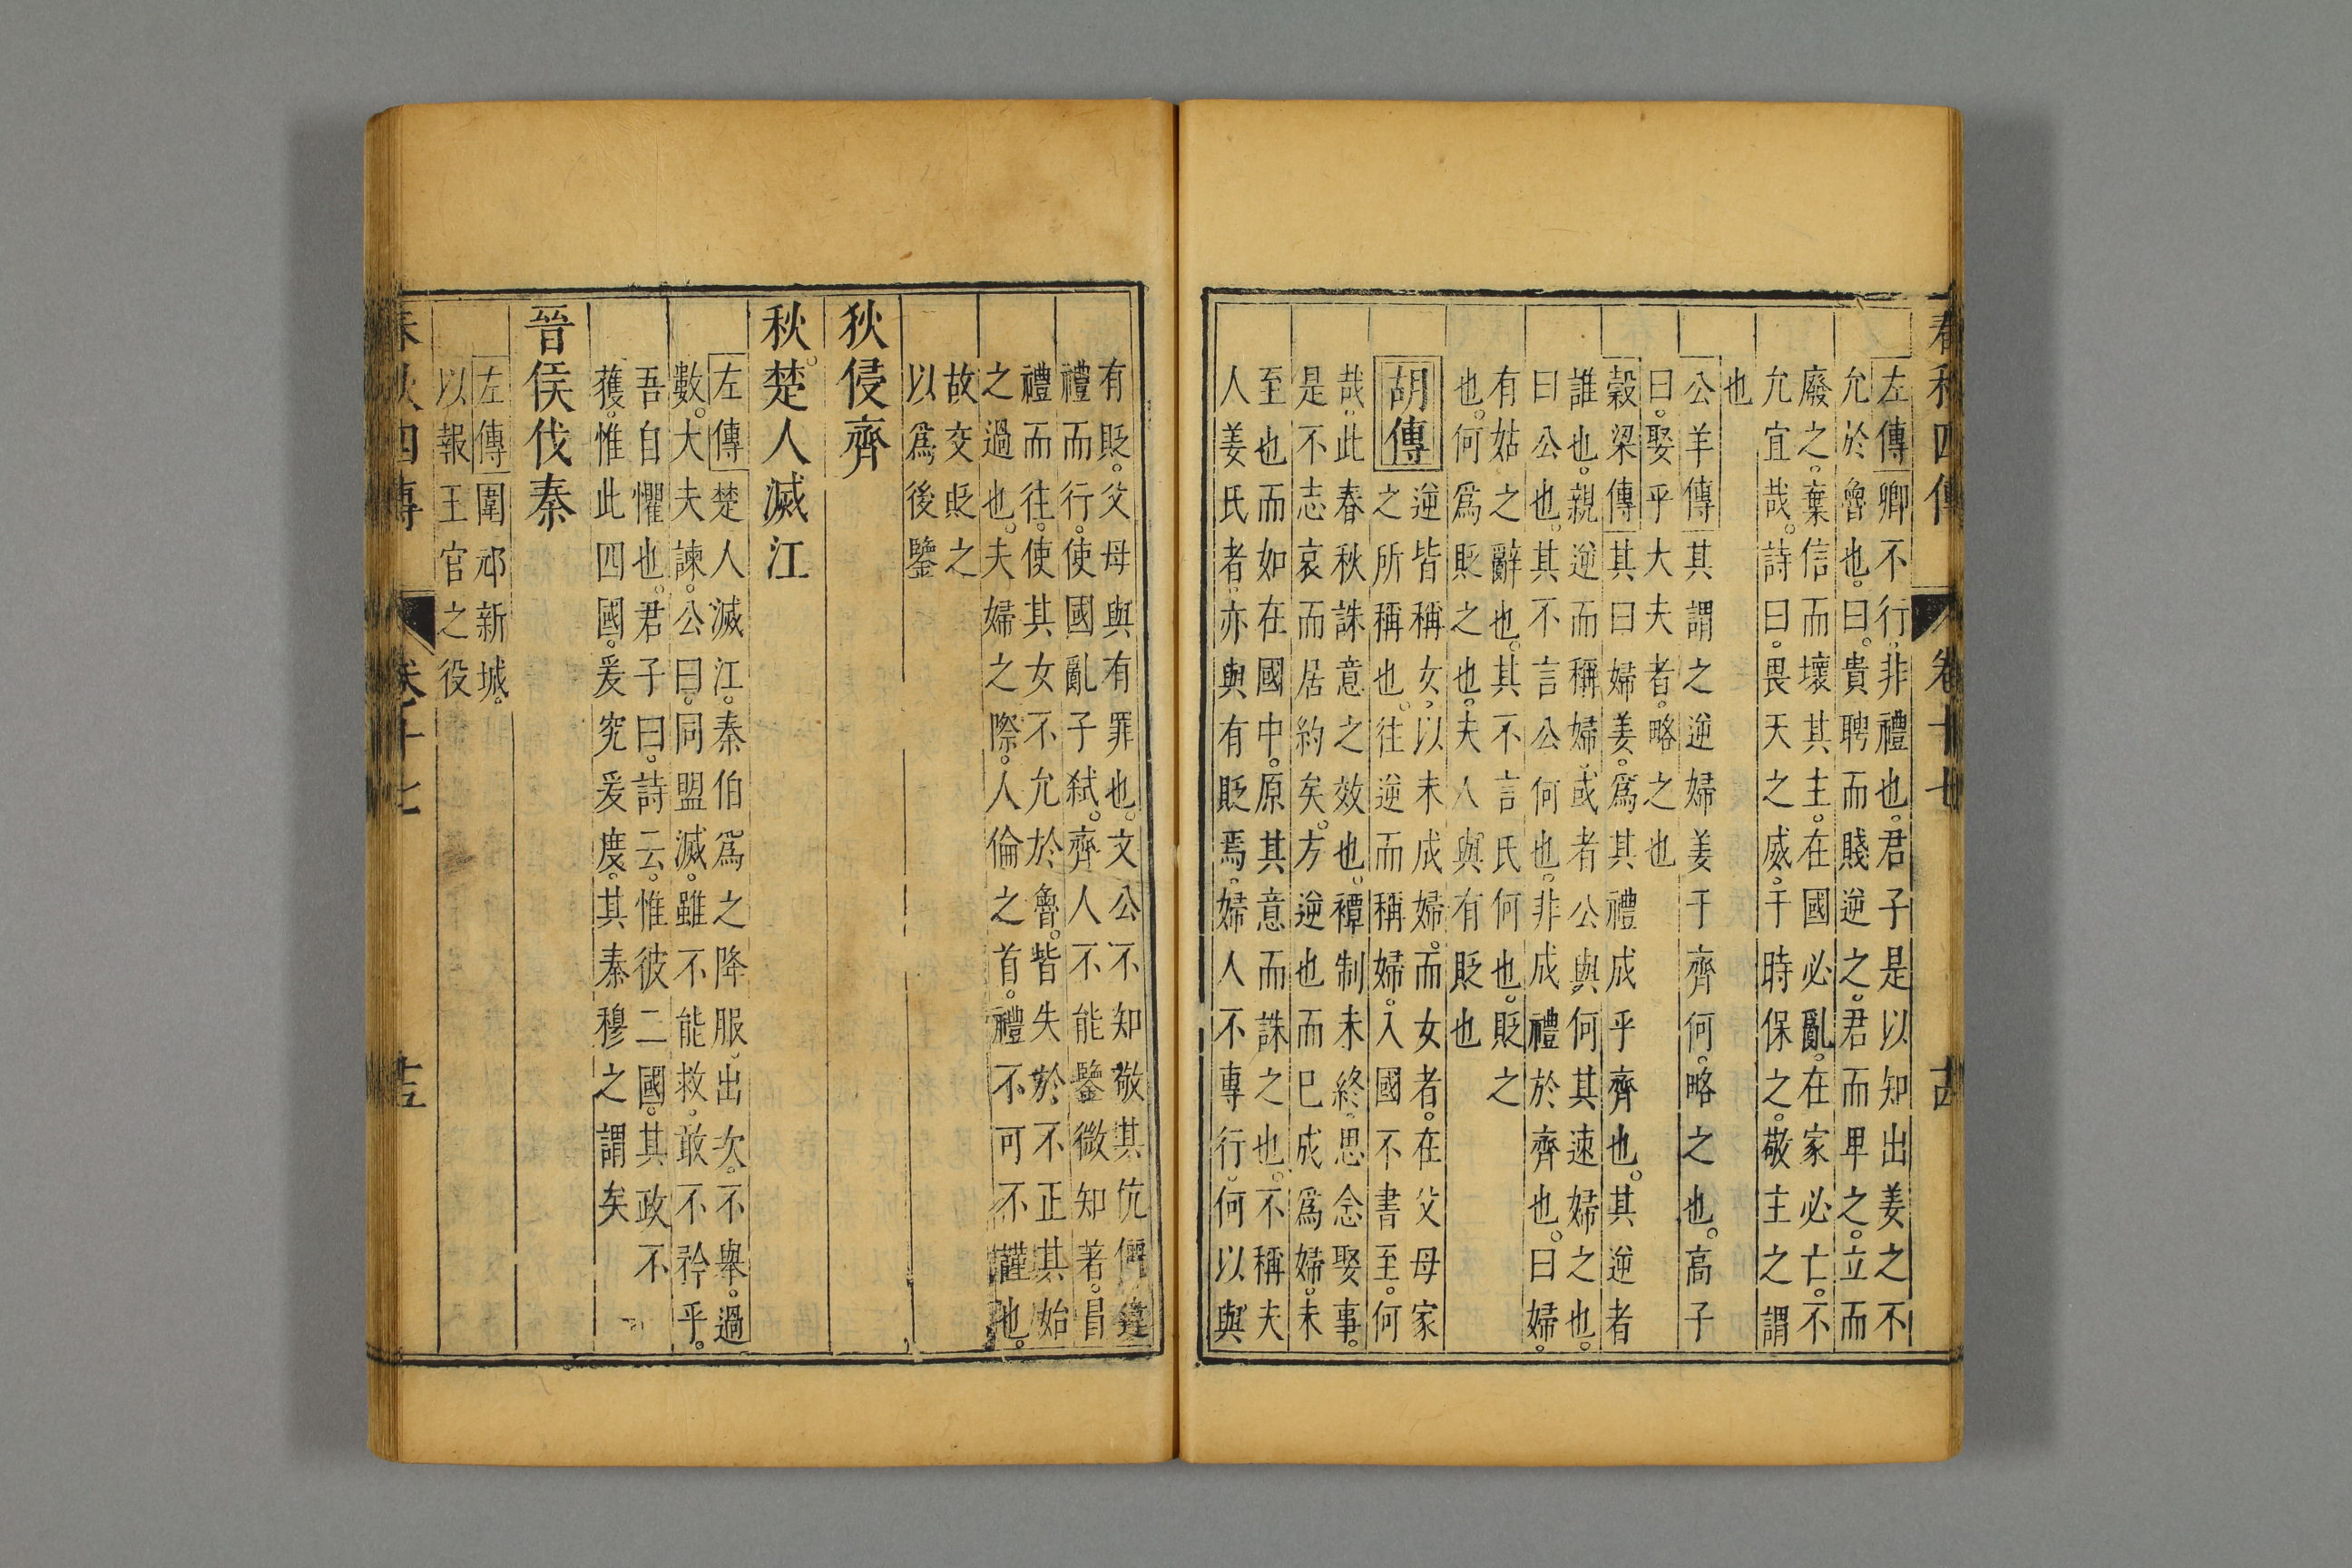 春秋四傳 卷十七 十四
左傳卿不行。非禮也。君子是以知出姜之不
允於魯也。曰。貴聘而賤逆之。君而卑之。立而
廢之。棄信而壞其主。在國必亂。在家必亡。不
允宜哉。詩曰。畏天之威。于時保之。敬主之謂
也
公羊傳其謂之逆婦姜于齊何。略之也。高子
曰。娶乎大夫者。略之也
穀梁傳其曰婦姜。爲其禮成乎齊也。其逆者
誰也。親逆而稱婦。或者公與。何其速婦之也。
曰公也。其不言公何也。非成禮於齊也。曰婦。
有姑之辭也。其不言氏何也。貶之
也。何爲貶之也。夫人與有貶也
胡傳
逆皆稱女。以未成婦。而女者。在父母家
之所稱也。往逆而稱婦。入國不書至。何
哉。此春秋誅意之效也。禫制未終。思念娶事。
是不志哀而居約矣。方逆也而已成爲婦。未
至也而如在國中。原其意而誅之也。不稱夫
人姜氏者。亦與有貶焉。婦人不專行。何以與
有貶。父母與有罪也。文公不知敬其伉儷違
禮而行。使國亂子弒。齊人不能鑒微知著。昌
禮而往。使其女不允於魯。皆失於不正其始
之過也。夫婦之際。人倫之首。禮不可不謹也。
故交貶之
以爲後鑒
狄侵齊
秋。楚人滅江
左傳楚人滅江。秦伯爲之降服。出次。不舉。過
數。大夫諫。公曰。同盟滅。雖不能救。敢不矜乎。
吾自懼也。君子曰。詩云。惟彼二國。其政不
獲。惟此四國。爰究爰度。其秦穆之謂矣
晉侯伐秦
左傳圍邧新城。
以報王官之役
春秋四傳 卷十七 十五